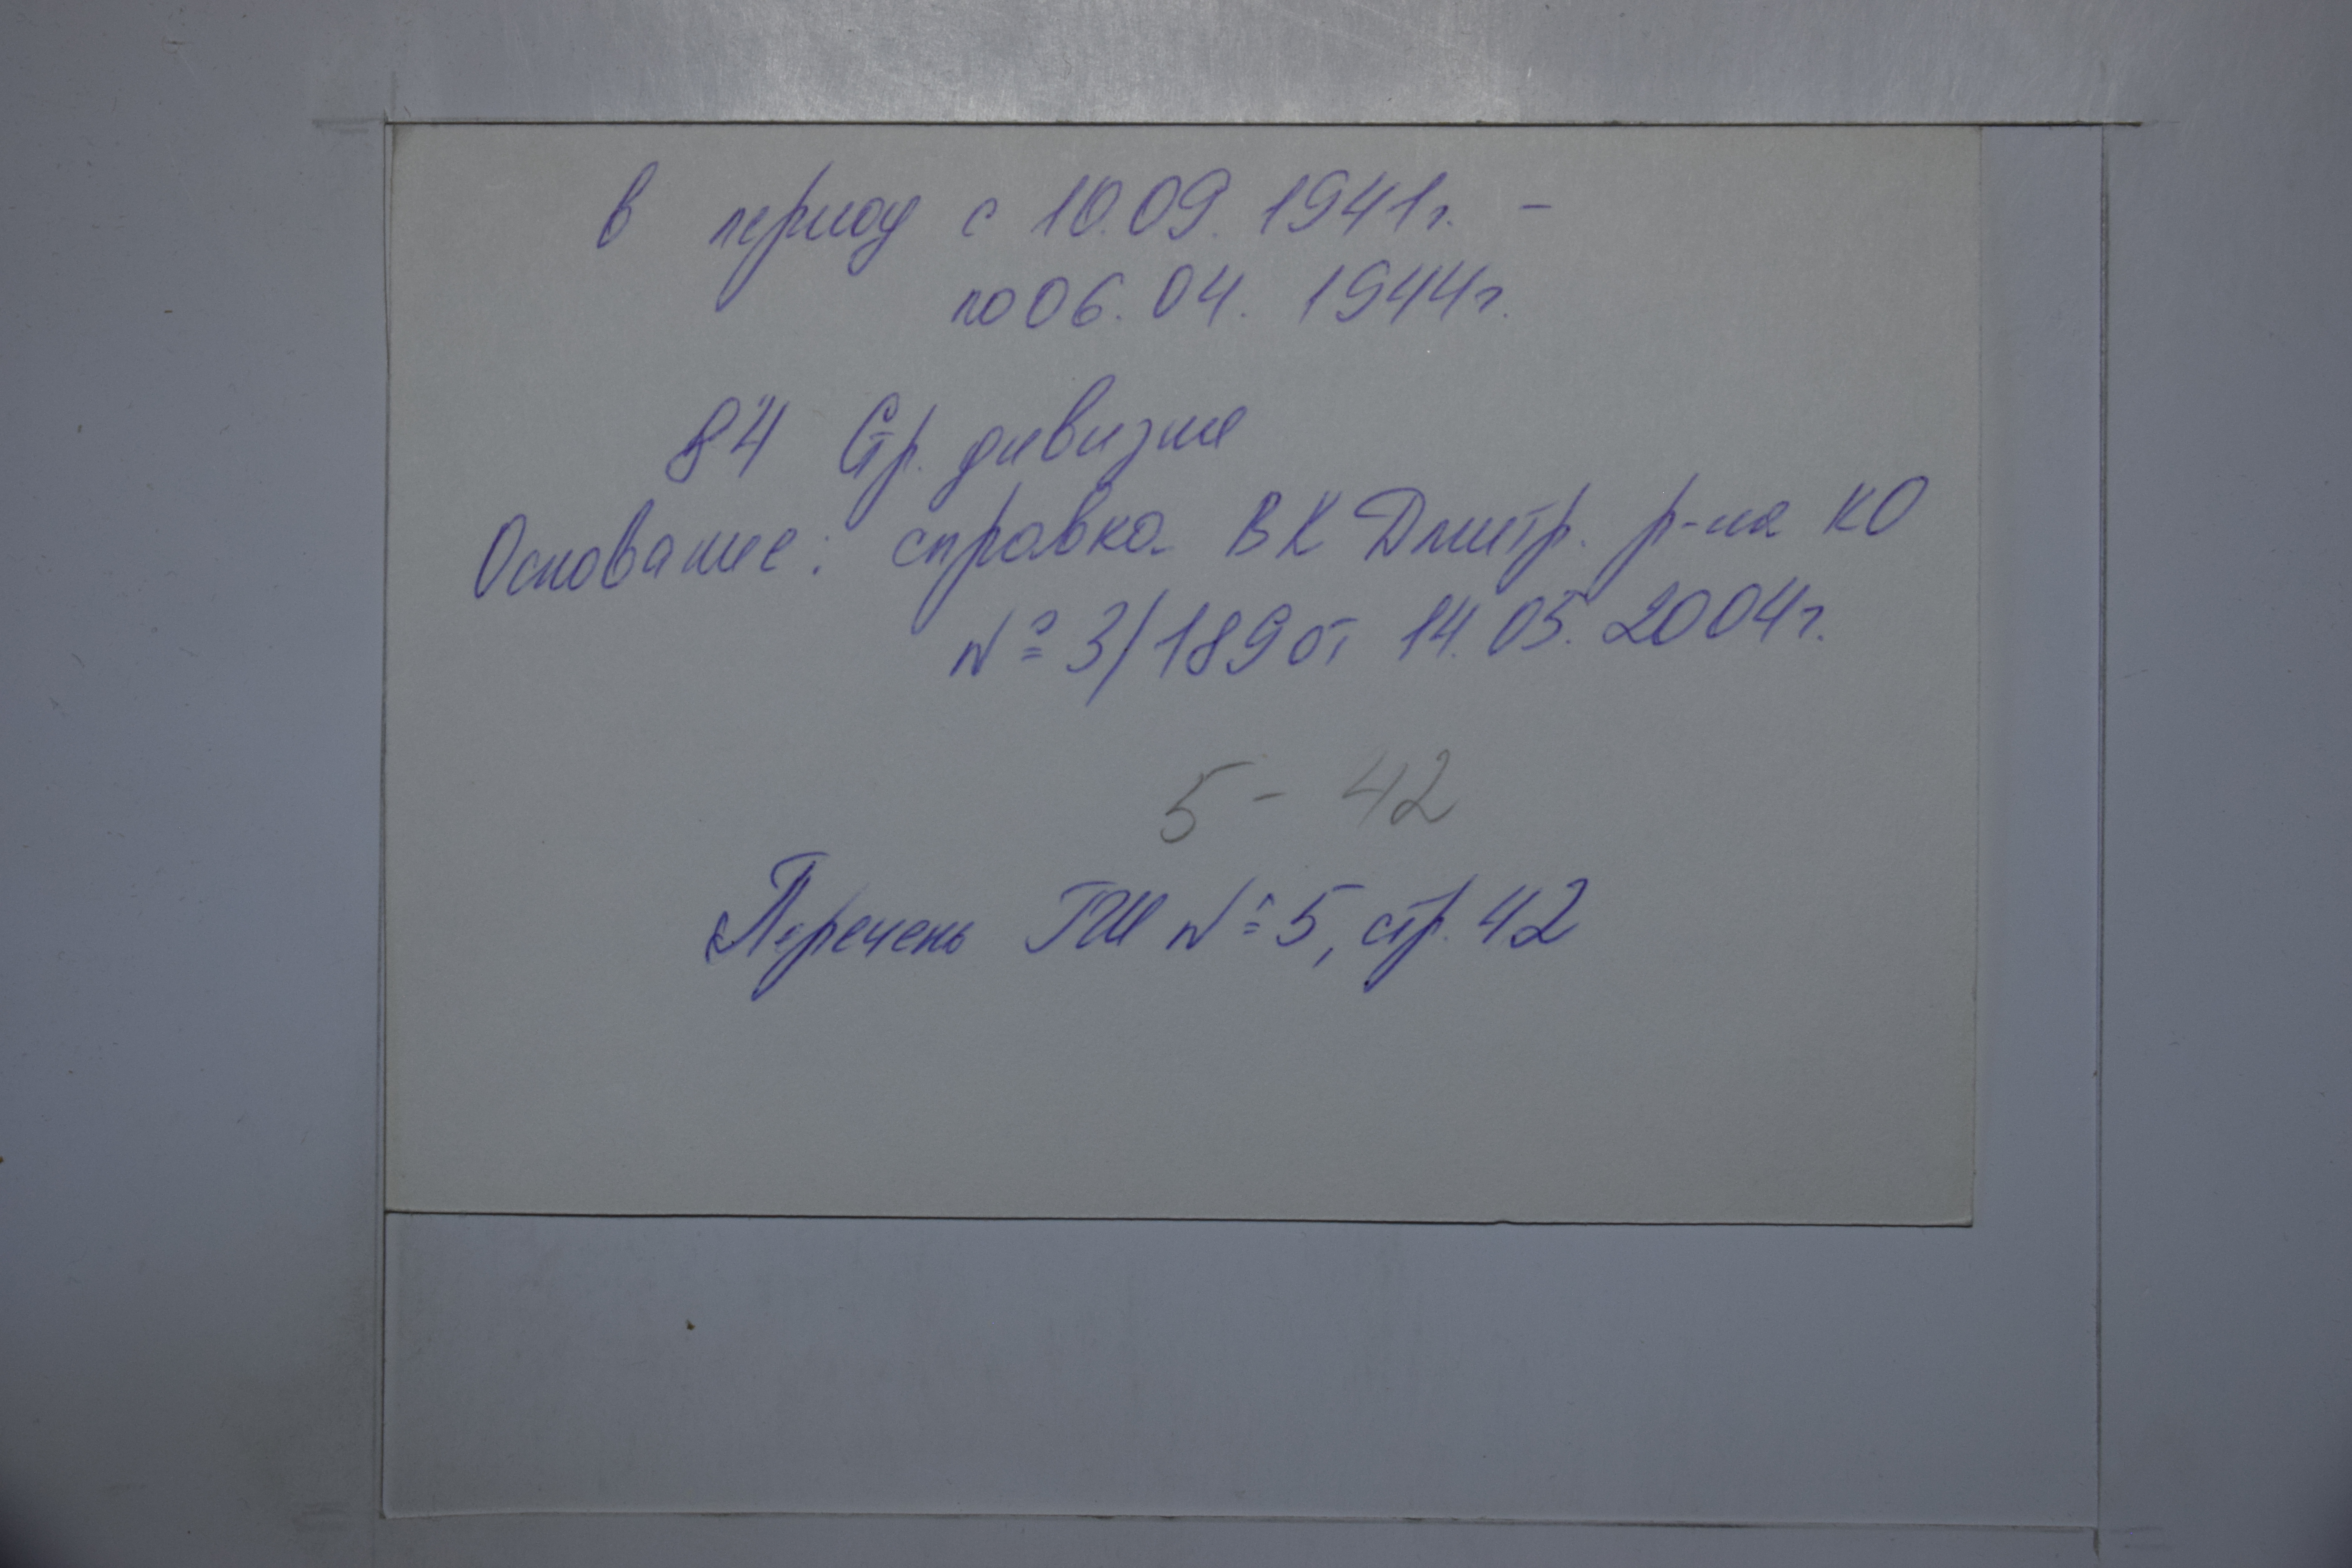 в период с 10.09.1941г. -
по 06.04.1944г.
84 Стр. дивизия
Основание: справка ВК Дмитр. р-на КО
№ 3/189 от 14.05.2004г.
5 - 42
Перечень ГШ № 5, стр. 42